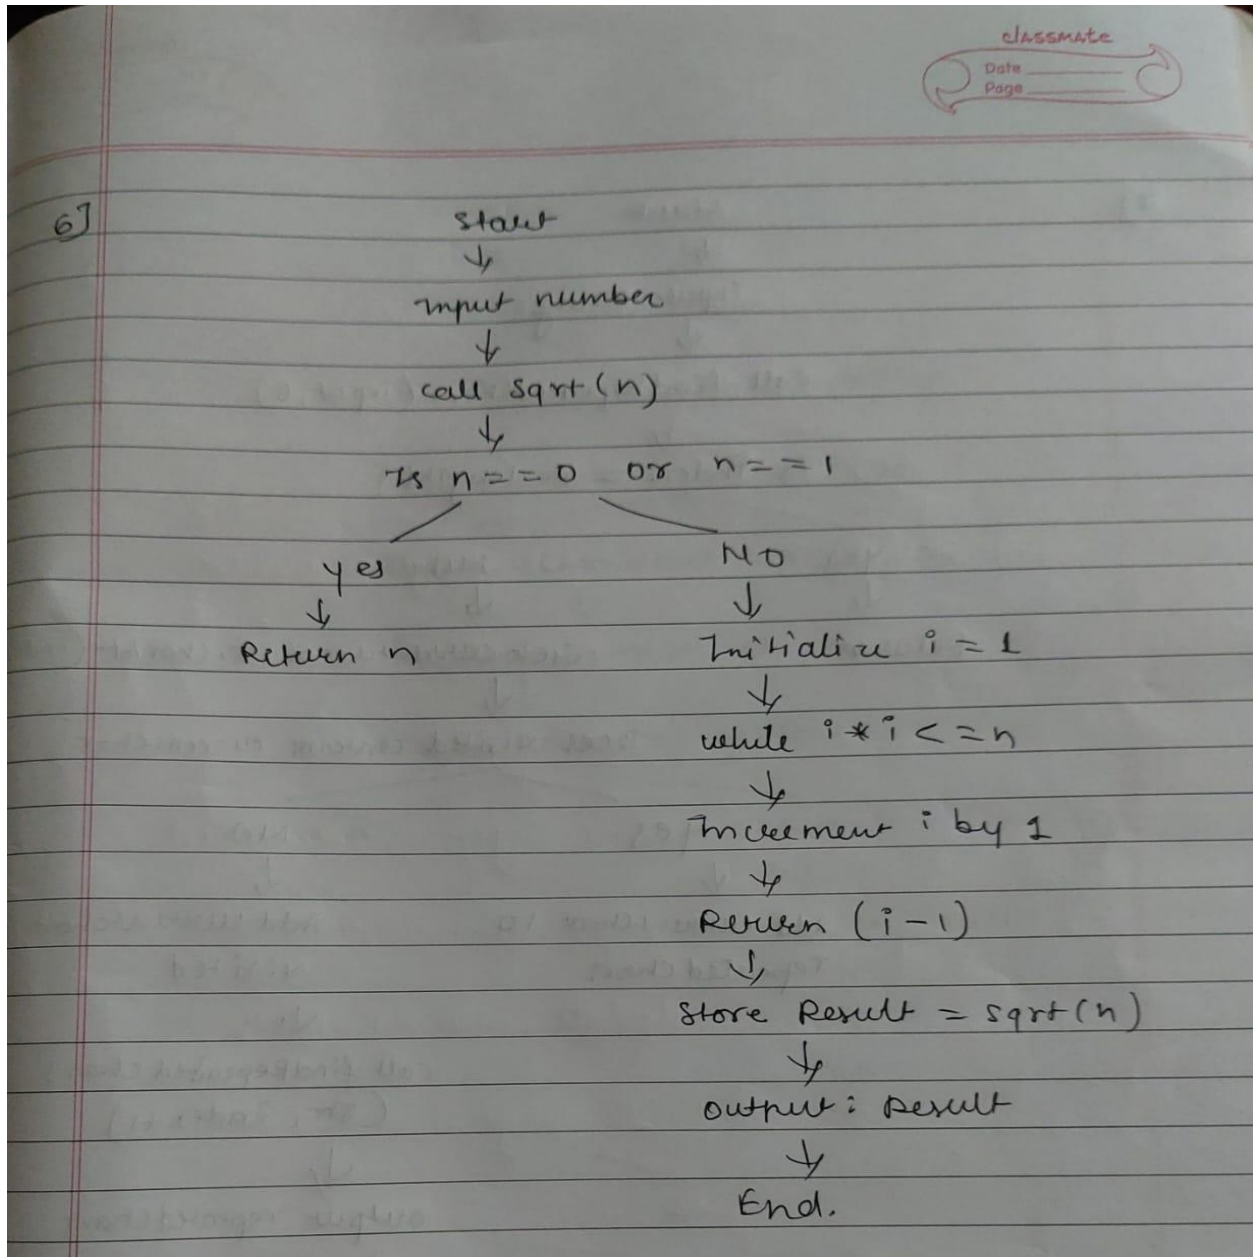 classmate
Date
Page
6]
Start
↓
Input number
↓
call sqrt(n)
↓
Is n==0 or n==1
Yes NO
↓ ↓
Return n Initialize i=1
↓
while i*i<=n
↓
Increment i by 1
↓
Return (i-1)
↓
Store Result = sqrt(n)
↓
Output: Result
↓
End.